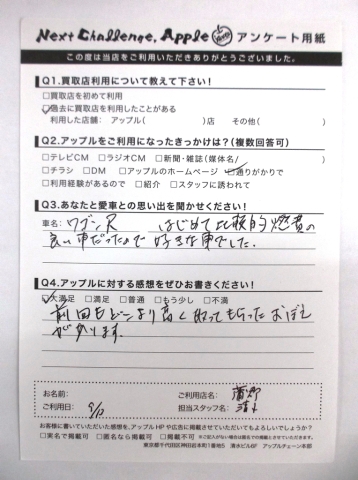 Next Challenge, Apple アンケート用紙
この度は当店をご利用いただきありがとうございました。
Q1.買取店利用について教えて下さい!
□買取店を初めて利用
☑過去に買取店を利用したことがある
利用した店舗: アップル( )店 その他( )
Q2.アップルをご利用になったきっかけは?(複数回答可)
□テレビCM □ラジオCM □新聞・雑誌(媒体名/ )
□チラシ □DM □アップルのホームページ ☑通りがかりで
□利用経験があるので □紹介 □スタッフに誘われて
Q3.あなたと愛車との思い出を聞かせてください!
車名: ワゴンR はじめて比較的燃費の
良い車だったので好きな車でした.
Q4.アップルに対する感想をぜひお書きください!
☑大満足 □満足 □普通 □もう少し □不満
前回もどこより高く取ってもらったおぼえ
があります.
お名前: ご利用店名: 蒲郡
ご利用日: 9/12 担当スタッフ名:
お客様に書いていただいた感想を、アップルHPや広告に掲載させていただいてもよろしいでしょうか?
□実名で掲載可 □匿名なら掲載可 □掲載不可 ※ご記入がない場合は匿名での掲載とさせていただきます。
東京都千代田区神田岩本町1番地5 清水ビル6F アップルチェーン本部